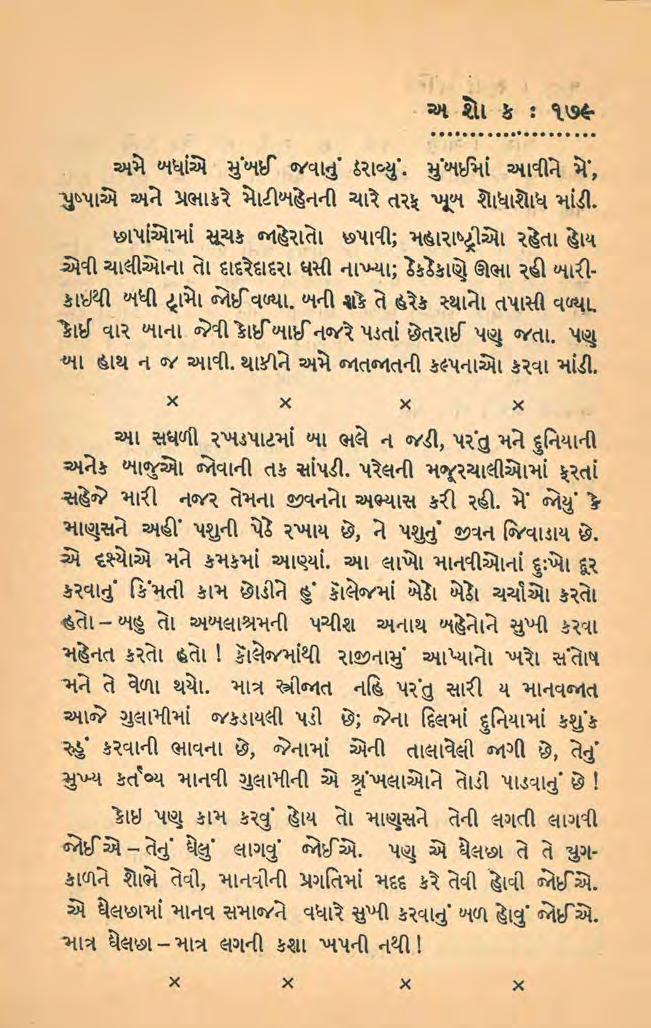 અ શો ક : ૧૭૯
અમે બધાંએ મુંબઈ જવાનું ઠરાવ્યું. મુંબઈમાં આવીને મેં,
પુષ્પાએ અને પ્રભાકરે મોટીબહેનની ચારે તરફ ખૂબ શોધાશોધ માંડી.
છાપાંઓમાં સૂચક જાહેરાતો છપાવી; મહારાષ્ટ્રીઓ રહેતા હોય
એવી ચાલીઓના તો દાદરેદાદરા ઘસી નાખ્યા; ઠેકઠેકાણે ઊભા રહી બારી-
કાઇથી બધી ટ્રામો જોઈ વળ્યા. બની શકે તે હરેક સ્થાનો તપાસી વળ્યા.
કોઈ વાર બાના જેવી કોઈ બાઈ નજરે પડતાં છેતરાઈ પણ જતા. પણ
બા હાથ ન જ આવી. થાકીને અમે જાતજાતની કલ્પનાઓ કરવા માંડી.
× × × ×
આ સઘળી રખડપાટમાં બા ભલે ન જડી, પરંતુ મને દુનિયાની
અનેક બાજુઓ જોવાની તક સાંપડી. પરેલની મજૂરચાલીઓમાં ફરતાં
સહેજે મારી નજર તેમના જીવનનો અભ્યાસ કરી રહી. મેં જોયું કે
માણસને અહીં પશુની પેઠે રખાય છે, ને પશુનું જીવન જિવાડાય છે.
એ દશ્યોએ મને કમકમાં આણ્યાં. આ લાખો માનવીઓનાં દુઃખો દૂર
કરવાનું કિંમતી કામ છોડીને હું કૉલેજમાં બેઠો બેઠો ચર્ચાઓ કરતો
હતો – બહુ તો અબલાશ્રમની પચીશ અનાથ બહેનોને સુખી કરવા
મહેનત કરતો હતો ! કૉલેજમાંથી રાજીનામું આપ્યાનો ખરો સંતોષ
મને તે વેળા થયો. માત્ર સ્ત્રીજાત નહિ પરંતુ સારી ય માનવજાત
આજે ગુલામીમાં જકડાયલી પડી છે; જેના દિલમાં દુનિયામાં કશુંક
રુડું કરવાની ભાવના છે, જેનામાં એની તાલાવેલી જાગી છે, તેનું
મુખ્ય કર્તવ્ય માનવી ગુલામીની એ શ્રૃંખલાઓને તોડી પાડવાનું છે !
કોઇ પણ કામ કરવું હોય તો માણસને તેની લગતી લાગવી
જોઈએ – તેનું ઘેલું લાગવું જોઈએ. પણ એ ઘેલછા તે તે યુગ-
કાળને શોભે તેવી, માનવીની પ્રગતિમાં મદદ કરે તેવી હોવી જોઈએ.
એ ઘેલછામાં માનવ સમાજને વધારે સુખી કરવાનું બળ હોવું જોઈએ.
માત્ર ઘેલછા – માત્ર લગની કશા ખપની નથી !
× × × ×